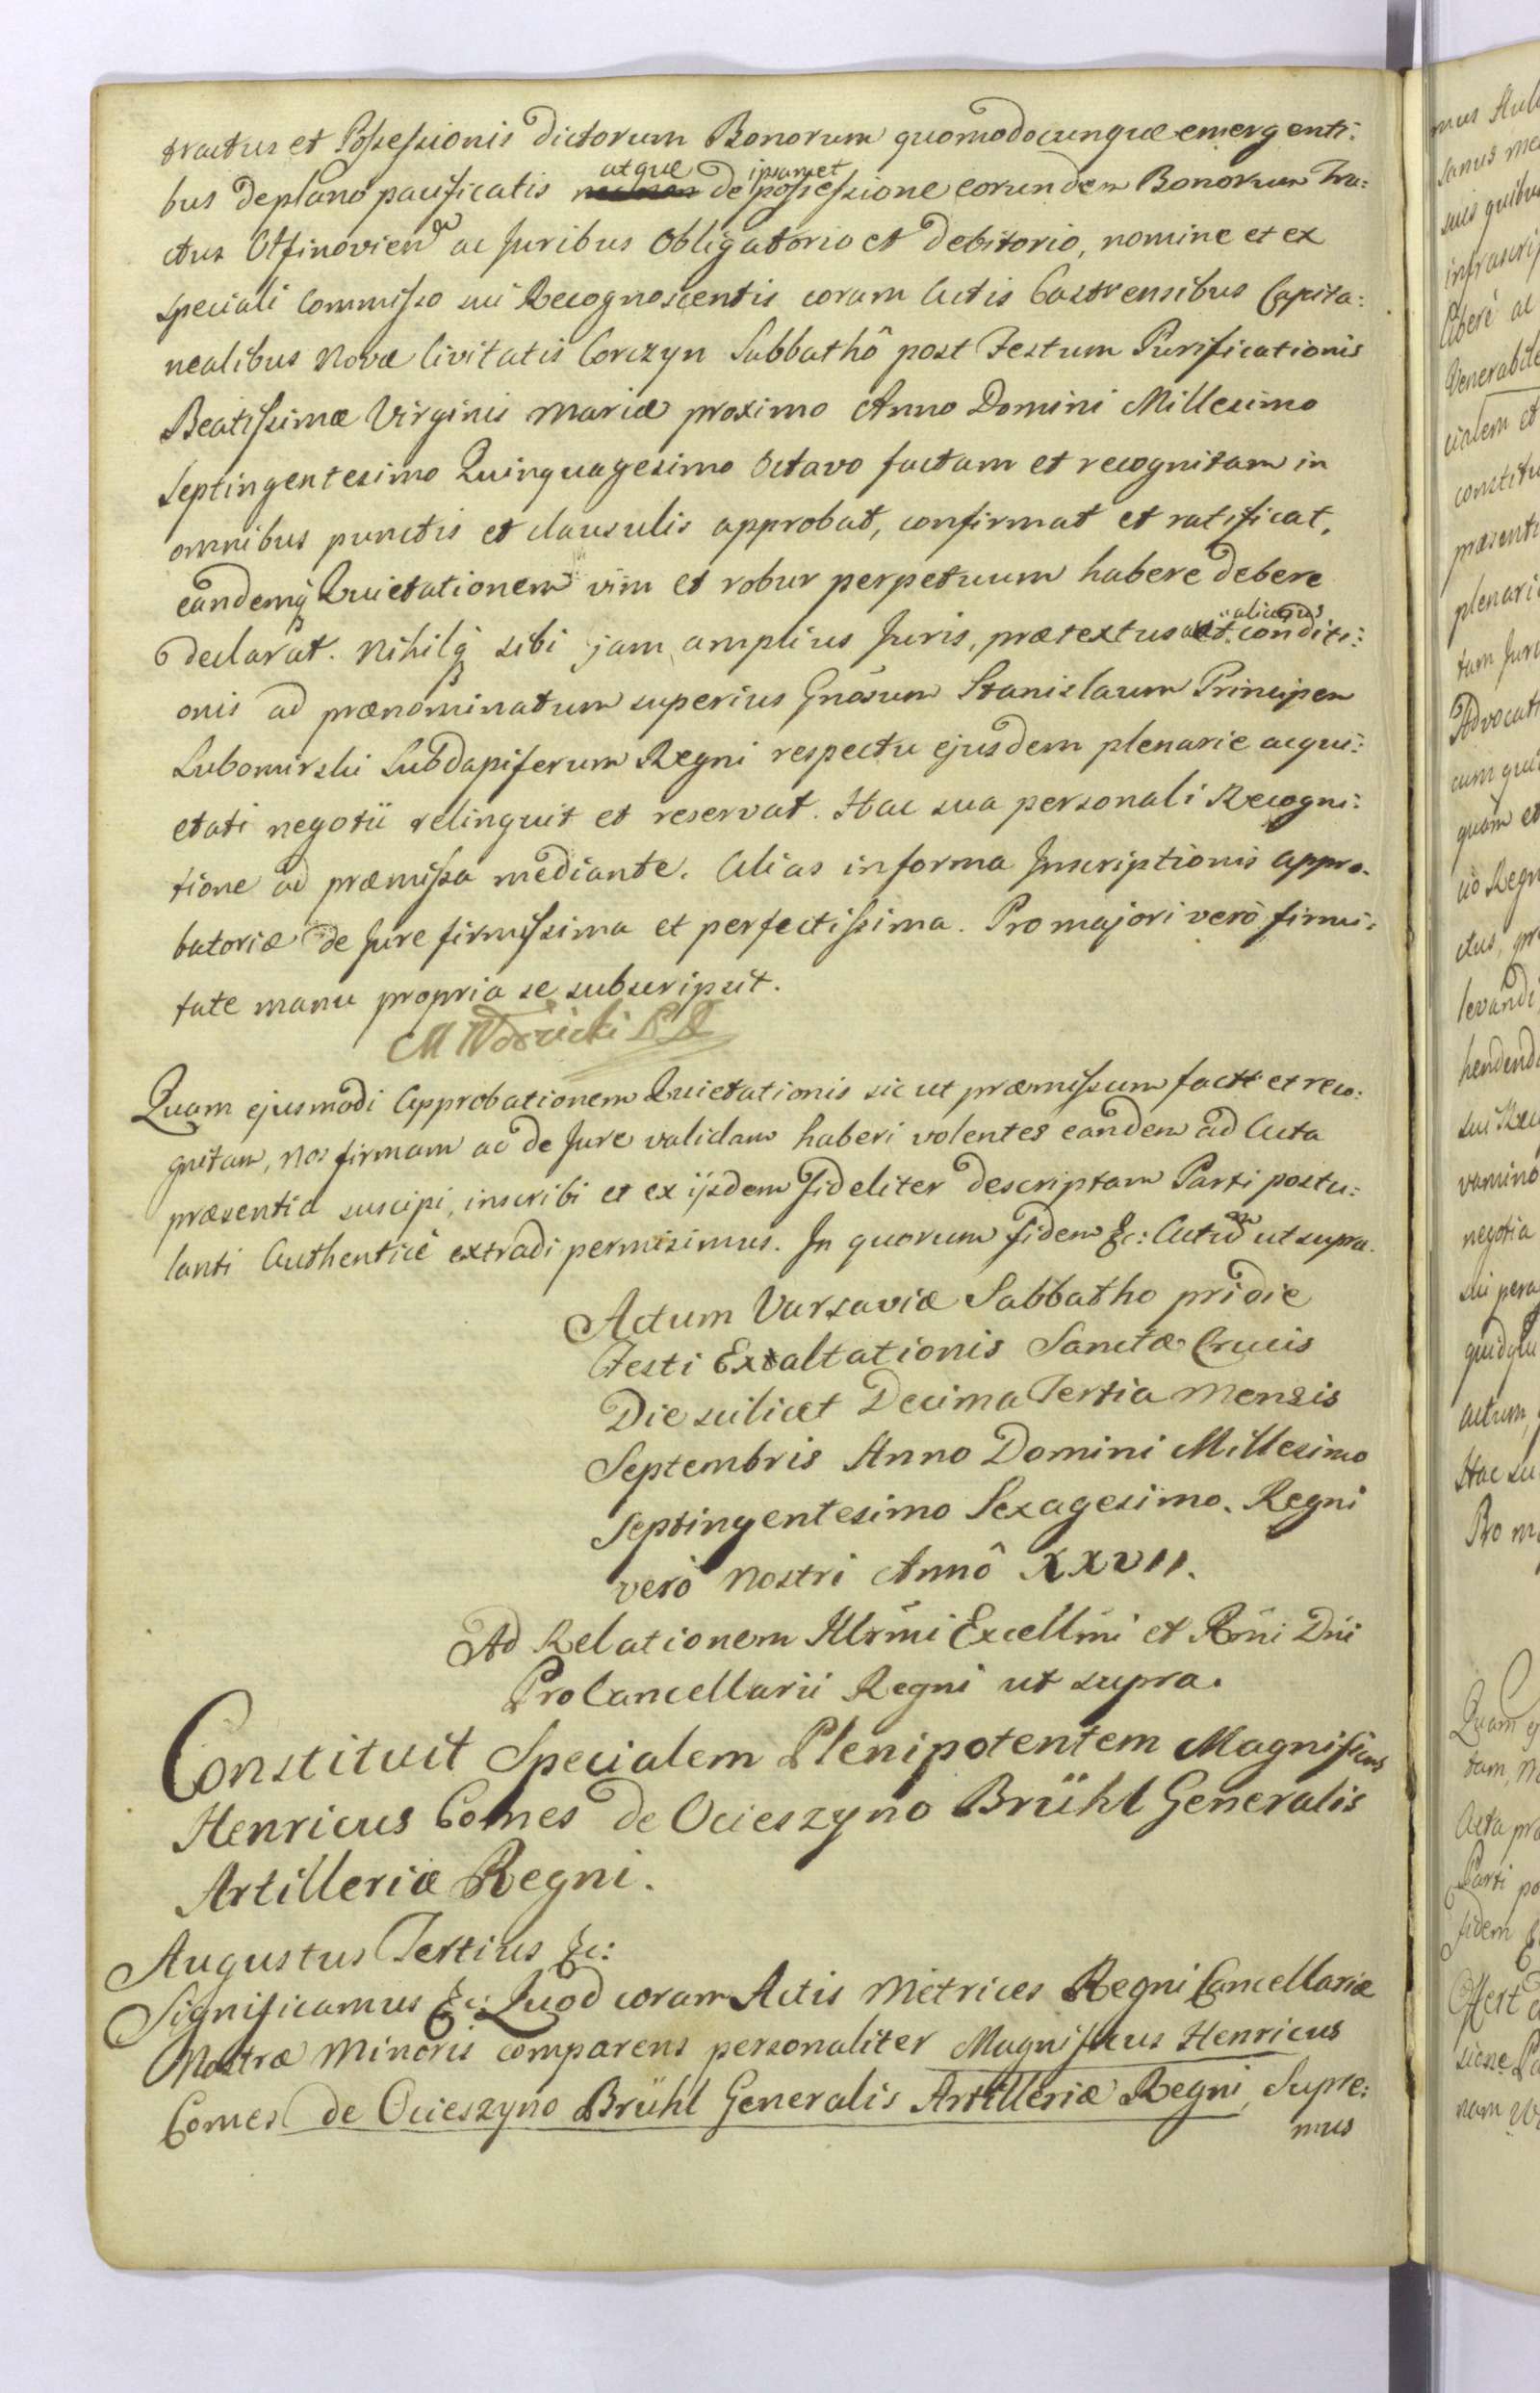 tractus et Possessionis dictorum Bonorum quomodocunque emergenti:
bus deplano pacificatis atque de ipsamet possessione eorundem Bonorum Tra:
ctus ac Juribus Obligatorio et debitorio, nomine et ex
speciali Commisso sui Recognoscentis coram Actis Castrensibus Capita:
nealibus Novæ Civitatis Corczyn Sabbathô post Festum Purificationis
Beatissimæ Virginis Mariæ proximo Anno Domini Millesimo
Septingentesimo Quinquagesimo Octavo factam et recognitam in
omnibus punctis et clausulis approbat, confirmat et ratificat,
eandemq Quietationem vim et robur perpetuum habere debere
declarat. Nihilq sibi jam amplius Juris, prætextus et alicujus conditi:
onis ad prænominatum superius Gnosum Stanislaum Principem
Lubomirski Subdapiferum Regni respectu ejusdem plenarie acqui:
etati negotii relinquit et reservat. Hac sua personali Recogni:
tione ad præmissa mediante. Alias in forma Inscriptionis appro:
batoriæ de Jure firmissima et perfectissima. Pro majori verò firmi:
tate manu propria se subscripsit.
Quam ejusmodi Approbationem Quietationis sic ut præmissum fact et reco:
gnitam, nos firmam ac de Jure validam haberi volentes eandem ad Acta
præsentia suscipi, inscribi et ex ijsdem fideliter descriptam Parti postu:
lanti Authenticè extradi permisimus. In quorum fidem &c: Actum ut supra.
Actum Varsaviæ Sabbatho pridie
Festi Exaltationis Sanctæ Crucis
Die scilicet Decima Tertia Mensis
Septembris Anno Domini Millesimo
Septingentesimo Sexagesimo. Regni
verò Nostri Annô XXVII.
Ad Relationem Illrmi Excellmi et Rmi Dni
ProCancellarii Regni ut supra.
Constituit Specialem Plenipotentem Magnificus
Henricus Comes de Ocieszyno Brühl Generalis
Artilleriæ Regni.
Augustus Tertius &c:
Significamus &c: Quod coram Actis Metrices Regni Cancellariæ
Nostræ Minoris comparens personaliter Magnificus Henricus
Comes de Ocieszyno Brühl Generalis Artilleriæ Regni, Supre:
mus